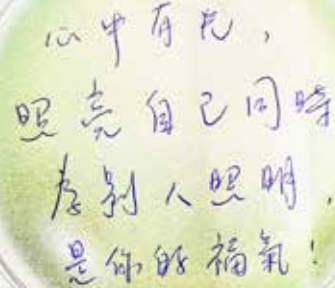 心中有光，
照亮自己同時
為別人照明，
是你的福氣！